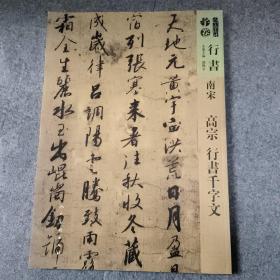 行書
南宋
高宗 行書千字文
天地元黃宇宙洪荒日月盈
宿列張寒来暑往秋收冬藏
成歲律呂調陽雲騰致雨露
霜金生麗水玉出崐崗劒